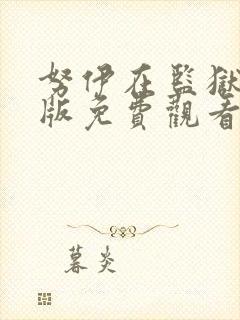 努伊在監獄
版免費觀看
暮炎